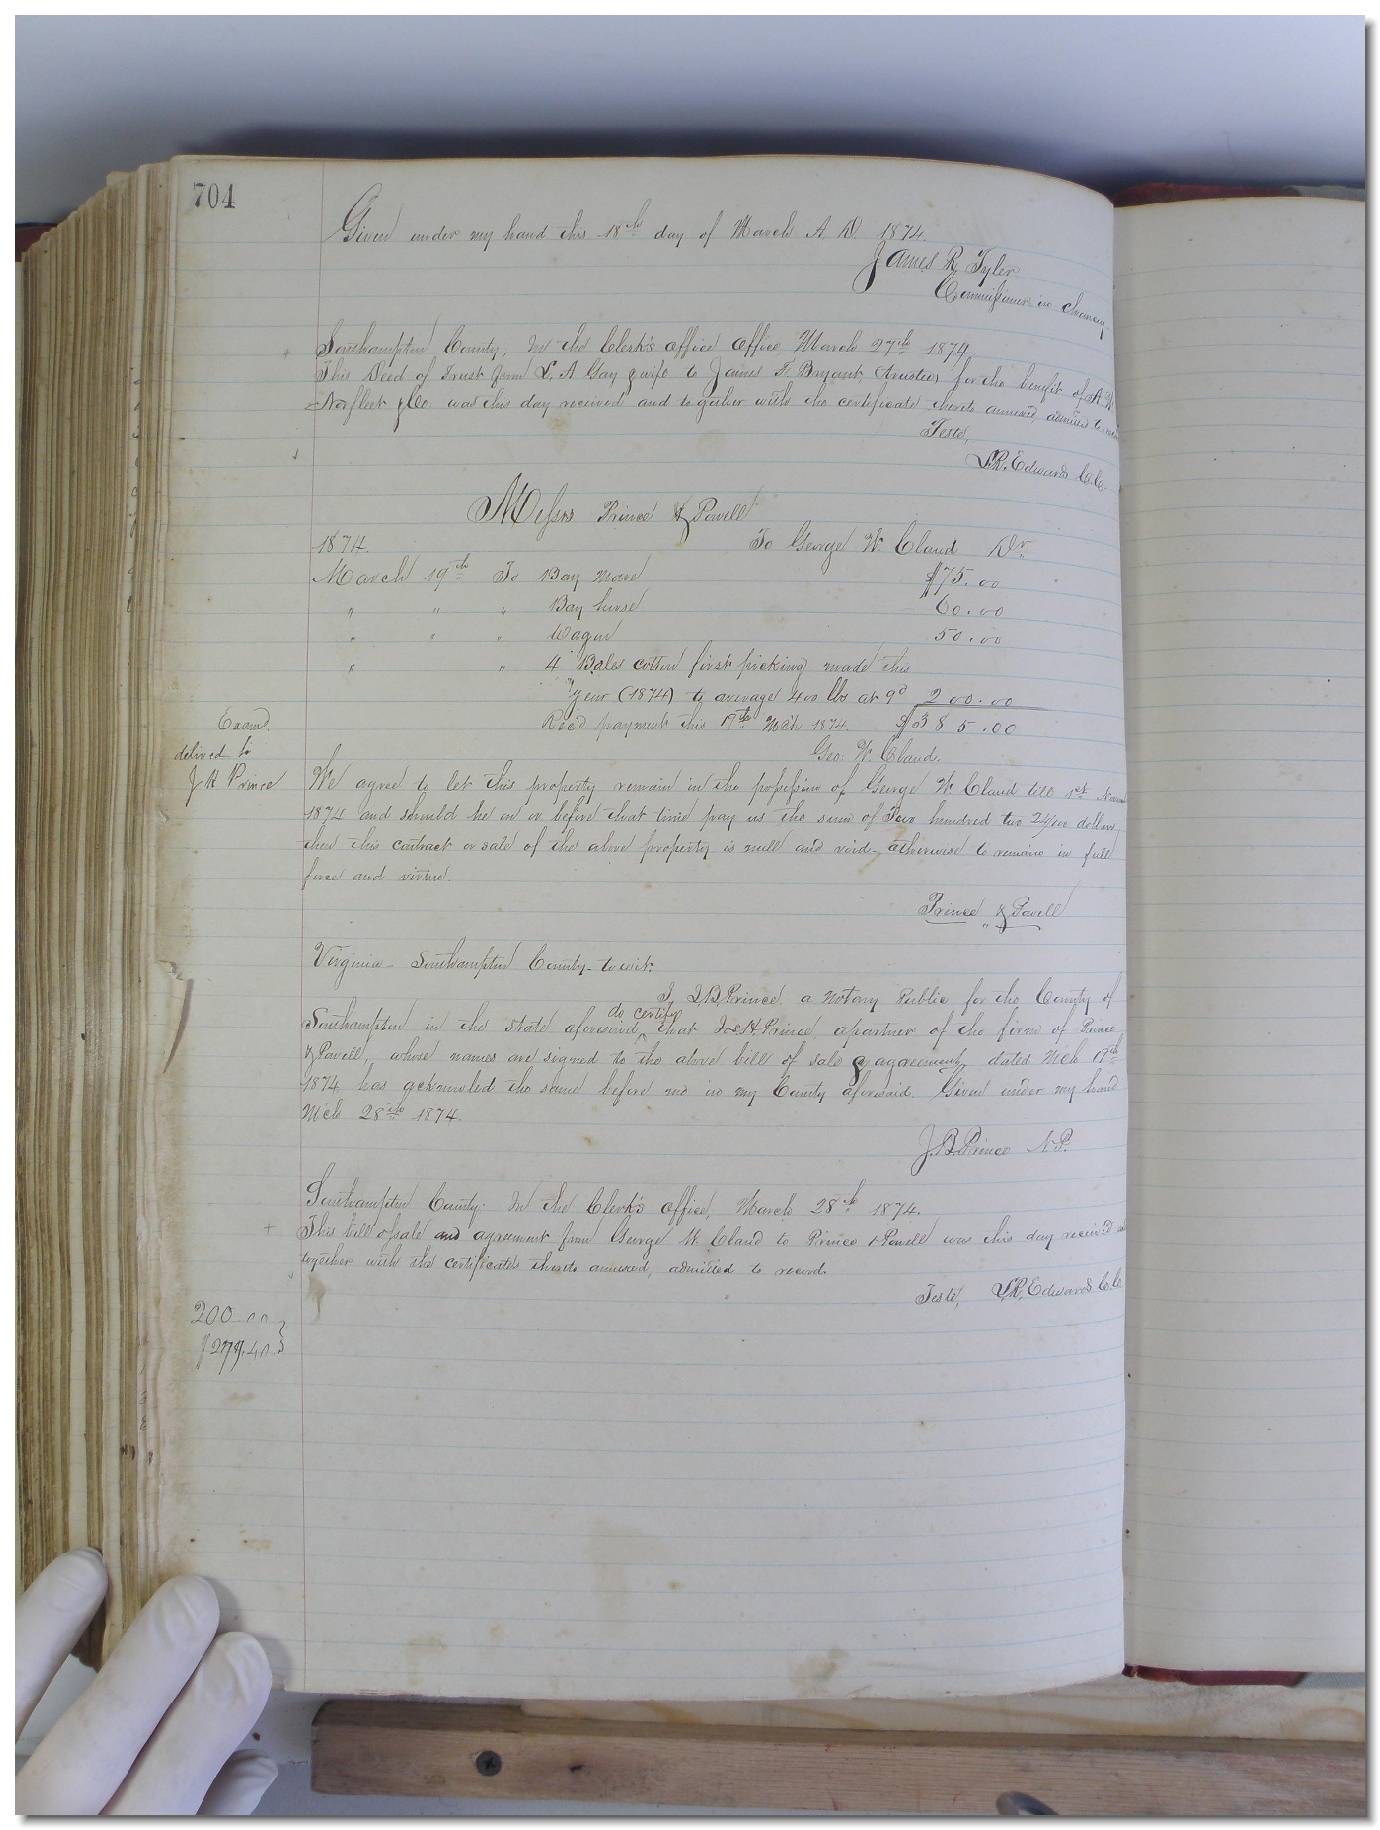 704
Given under my hand this 18th day of March A. D. 1874.
James R. Tyler
Commissioner in chancery
Southampton County, In the Clerk's office office March 27th 1874
This Deed of Trust from L. A Gay & wife to James F. Bryant, (trustee) for the benefit of A. W
Norfleet & Co. was this day received and together with the certificate thereto annexed, admitted to record
Teste,
L.R. Edwards C.C.
Messrs Prince & Powell
1874. To George W. Claud Dr
March 19th To Bay mare $75.00
" " " Bay horse 60.00
" " " Wagon 50.00
" " 4 Bales cotton first picking made this
year (1874) to average 400 lbs at 9d 200.00
Rec'd payment this 19th Mch 1874. $385.00
Geo: W. Claud.
Examd.
delived to
J H Prince
We agree to let this property remain in the possession of George W Claud till 1st
1874 and should he on or before that time pay us the sum of Two hundred two 24/100 dollars,
then this contract or sale of the above property is null and void- otherwise to remain in full
force and virtue.
Prince & Powell
Virginia - Southampton County - to wit:
I, J.B. Prince, a notary Public for the County of
Southampton in the state aforesaid, do certify that Jos H Prince, a partner of the firm of Prince
& Powell, whose names are signed to the above bill of sale & agreement, dated Mch 19th
1874 has acknowled the same before me in my County aforesaid. Given under my hand
Mch 28th 1874.
J.B. Prince N.P.
Southampton County: In the Clerk's office, March 28th 1874.
This bill of sale and agreement from George W. Claud to Prince & Powell was this day received and
together with the certificate thereto annexed, admitted to record.
Teste, L.R. Edwards C.C.
200.00